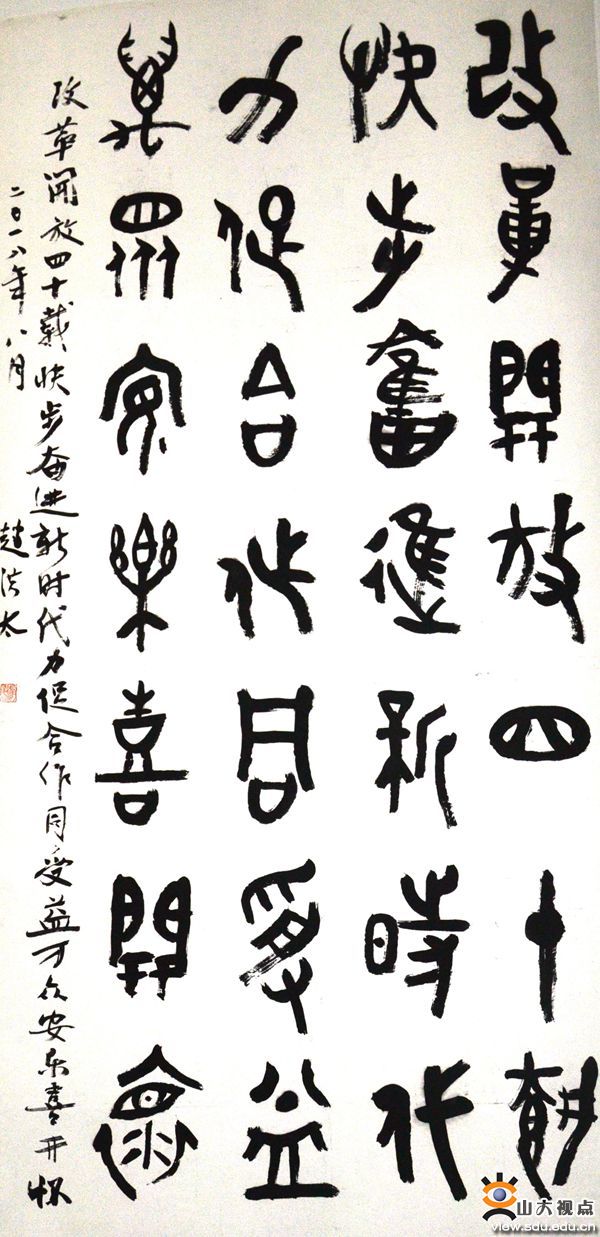 改革開放四十載
快步奮進新時代
力促合作同受益
萬眾安樂喜開懷
改革開放四十載快步奋进新时代力促合作同受益万众安乐喜开怀
二〇一八年八月
趙洪太
山大视点
view.sdu.edu.cn